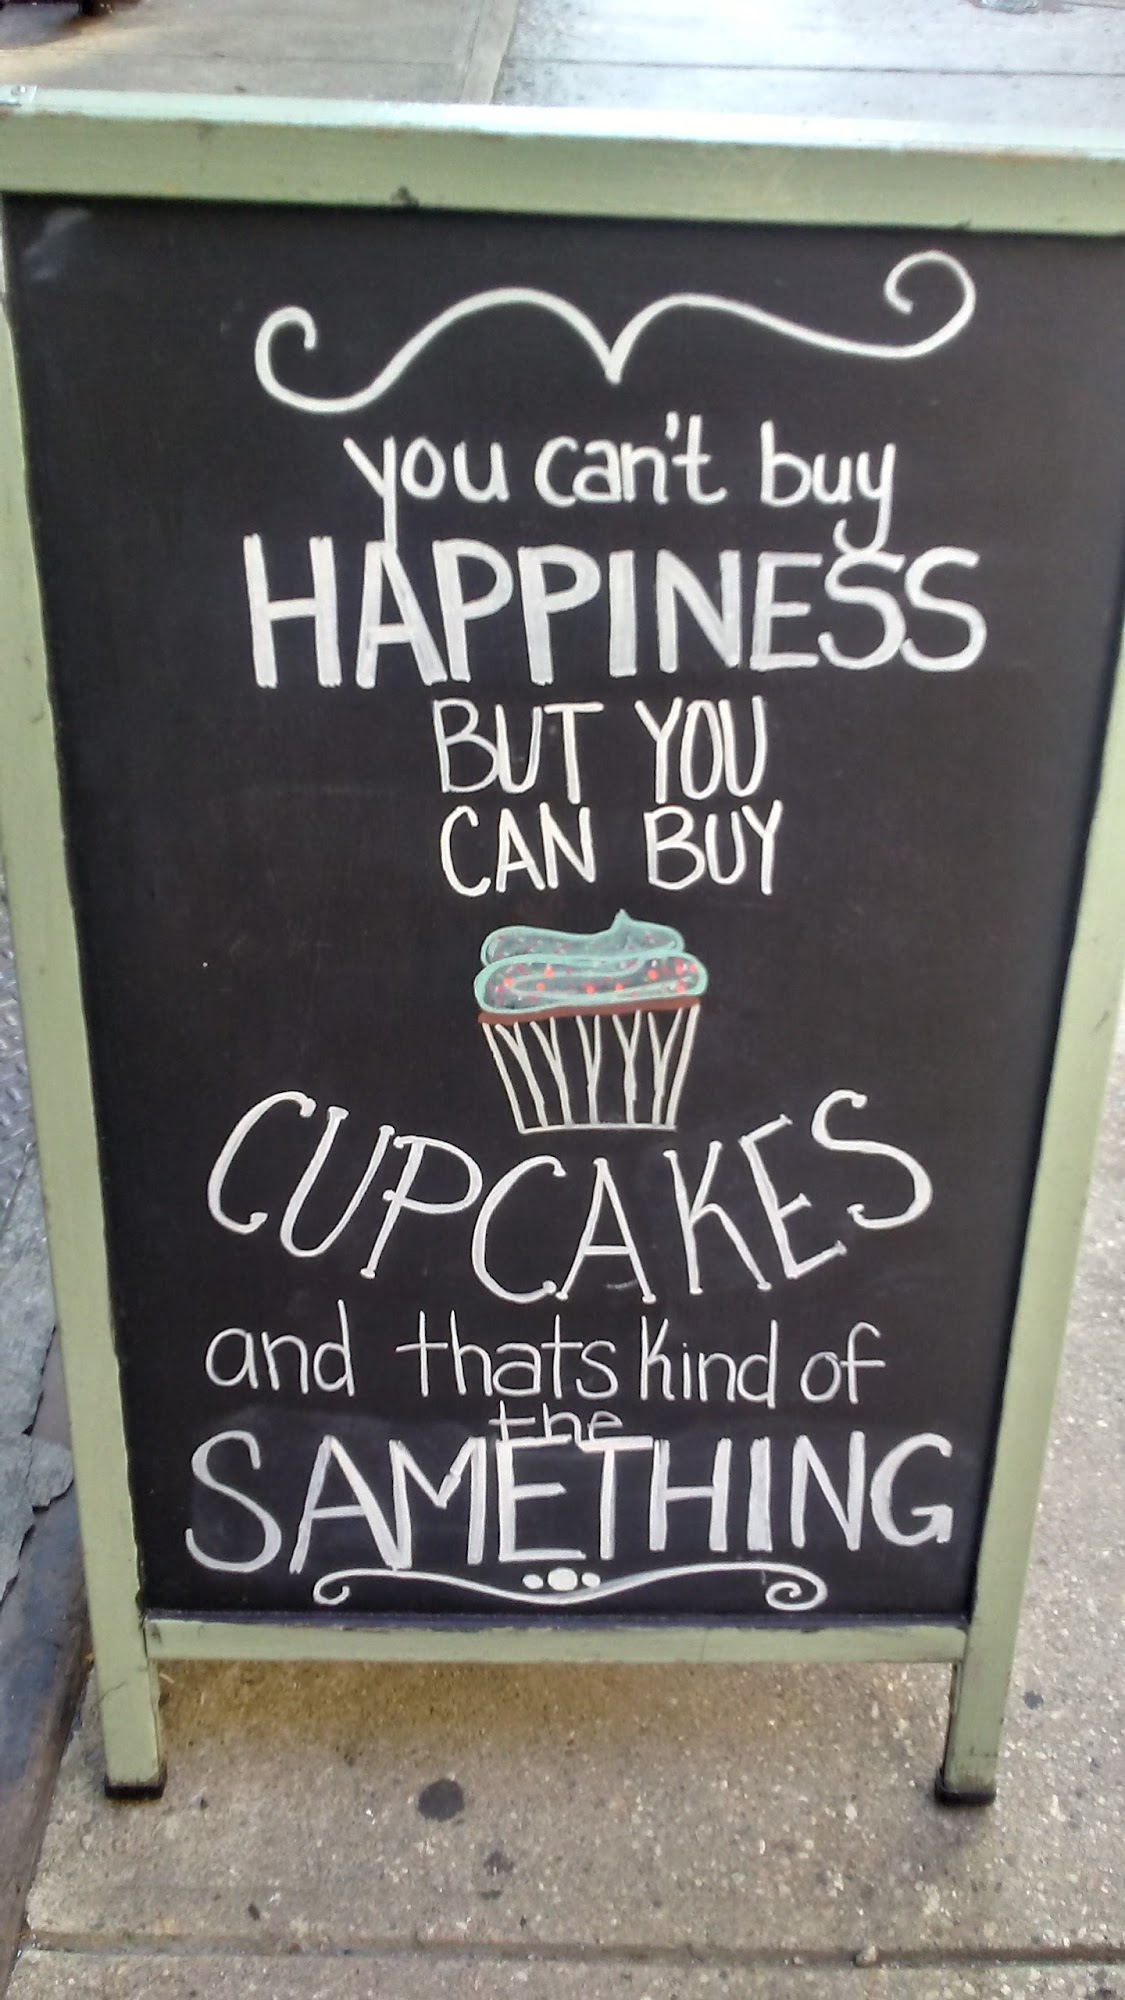 you can't buy
HAPPINESS
BUT YOU
CAN BUY
CUPCAKES
and thats kind of
the
SAMETHING